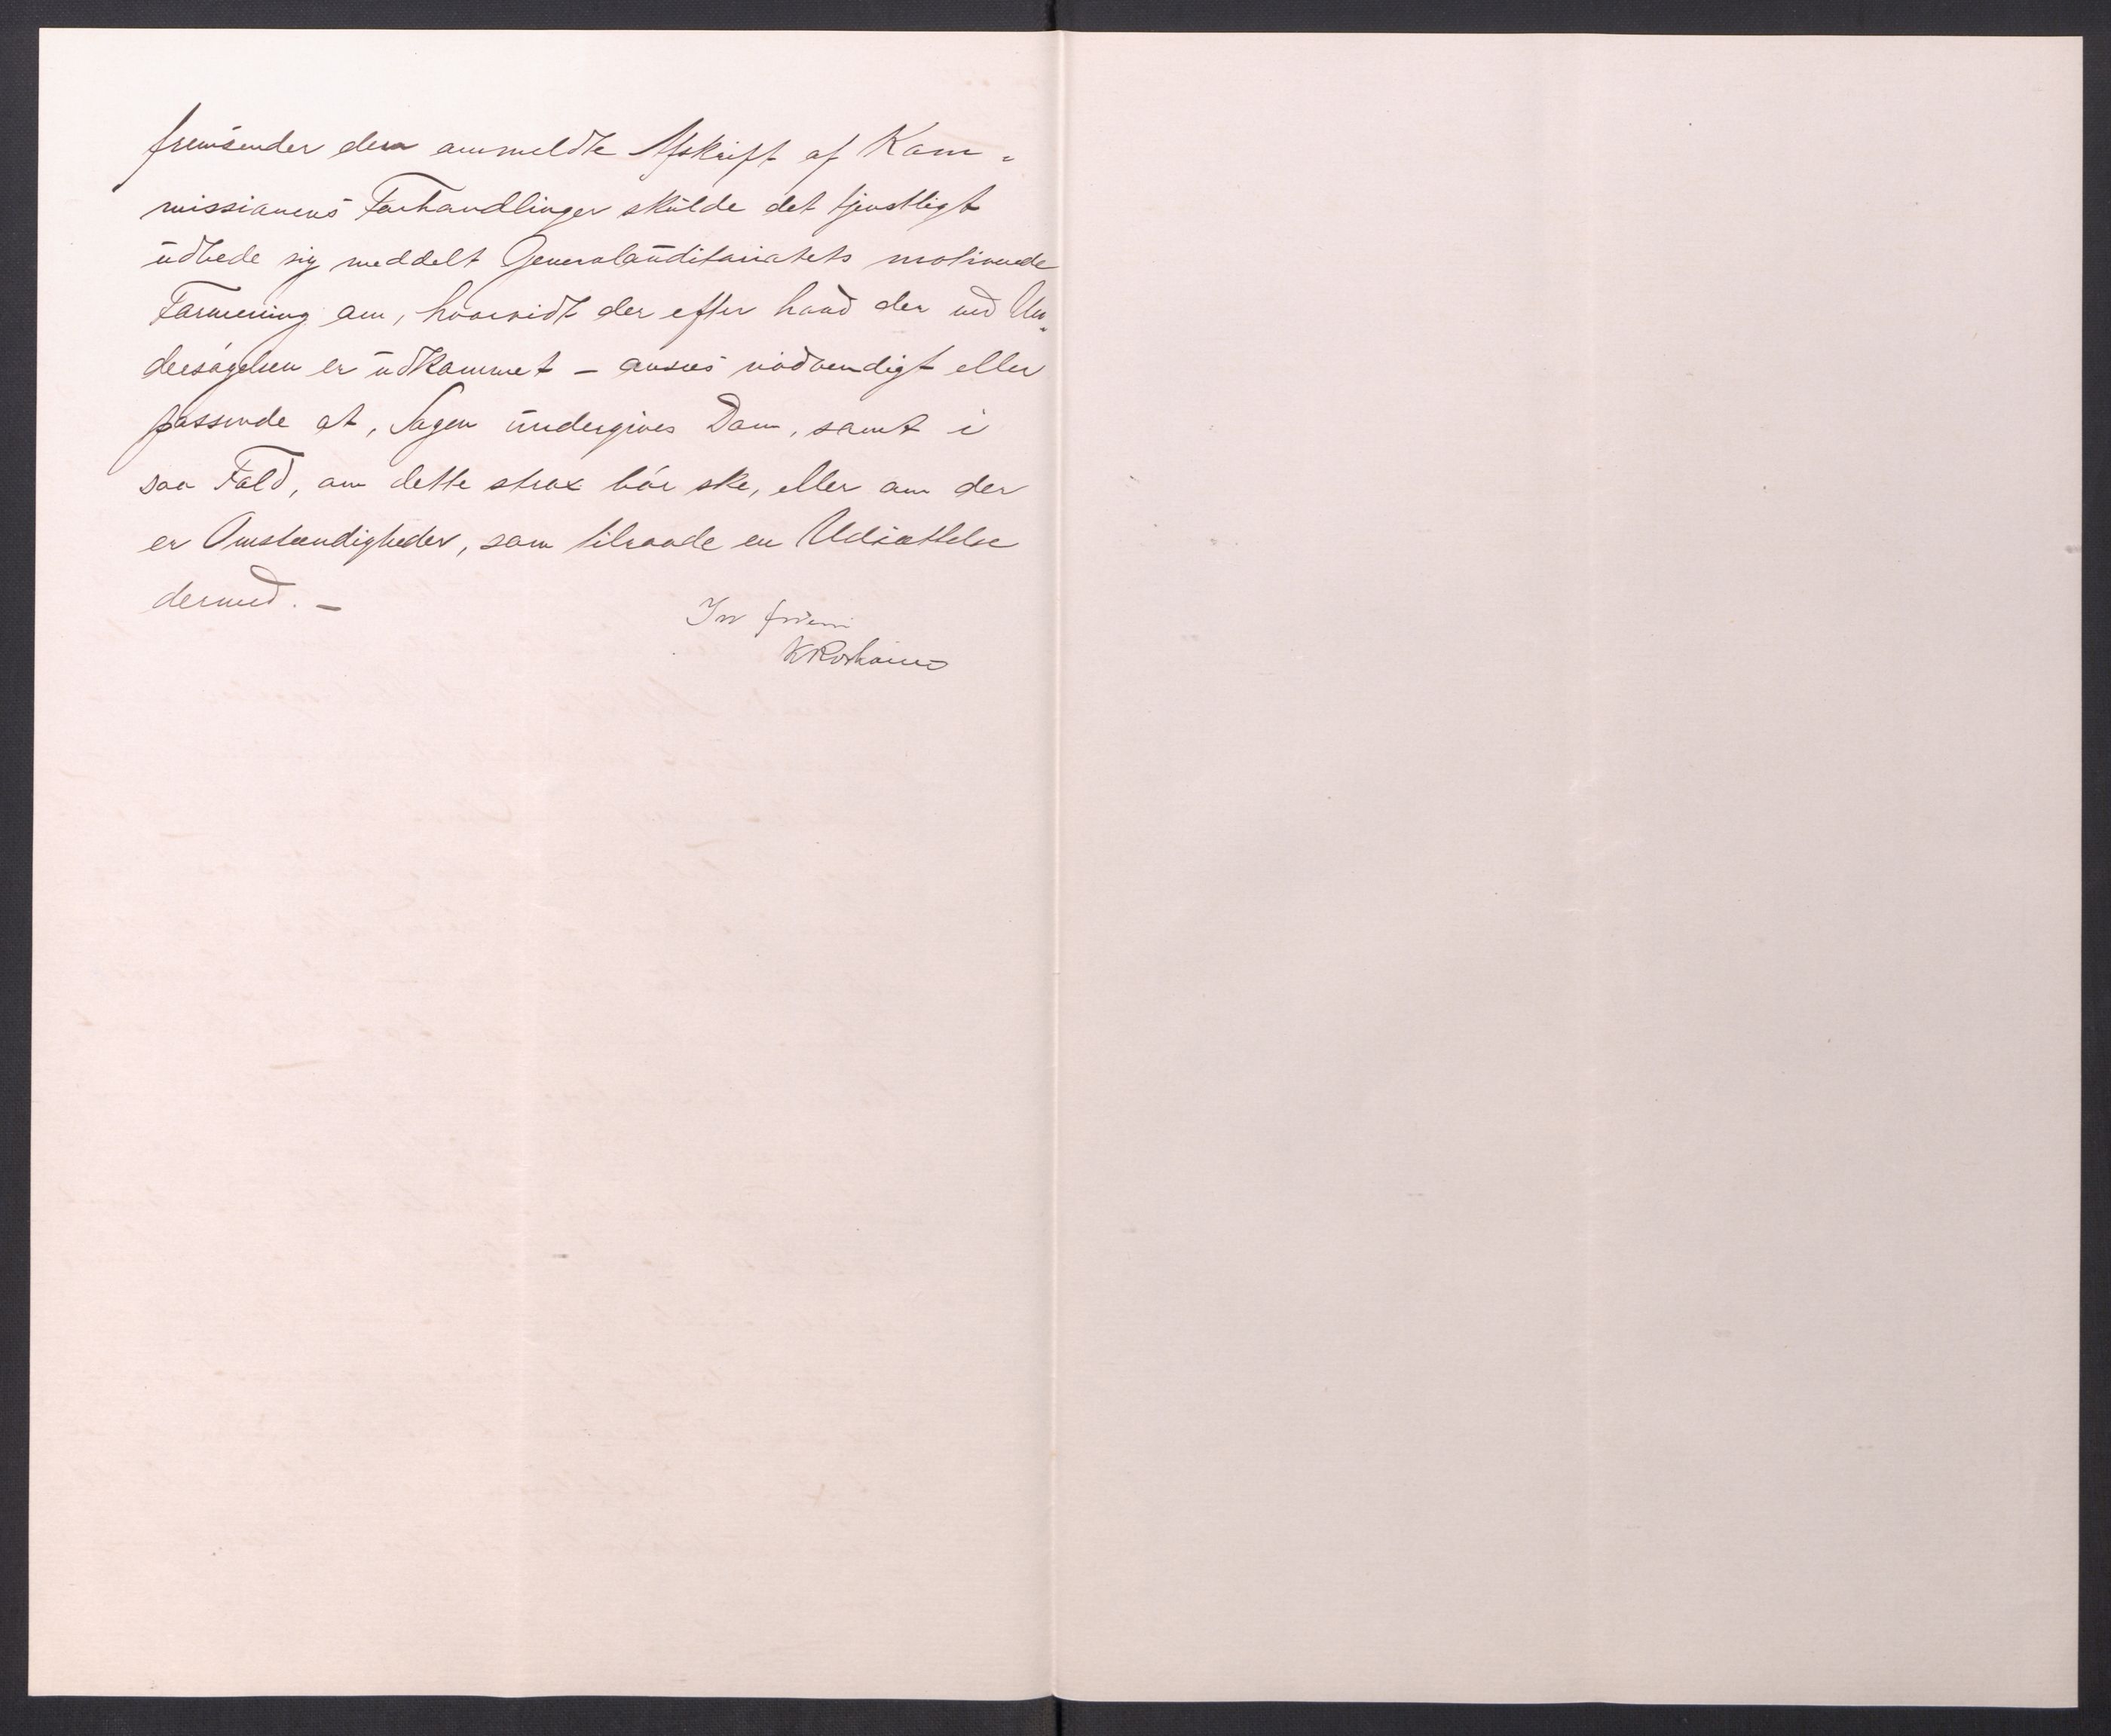 fremsender den anmeldte Afskrift af Kom-
missionens Forhandlinger skulde det tjenstligt
udbede sig meddelt Generalauditoriatets motiverede
Formening om, hvorvidt der efter hvad der ved Un-
dersögelsen er udkommet - ansees nödvendigt eller
passende at, Sagen undergives Dom, samt i
saa Fald, om dette strax bör ske, eller om der
er Omstændigheder, som tilraade en Udsættelse
dermed. -